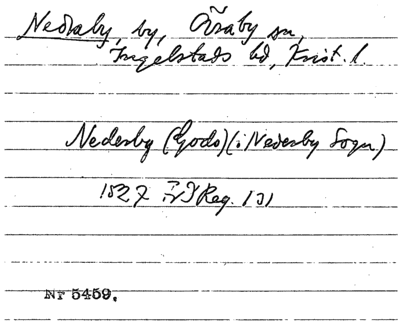 Nedraby, by, Öraby sn,
Ingelstads hd, Krist. l.
Nederby (Gods) (i Nederby Sogn)
1527 Reg. 131
Nr 5459.